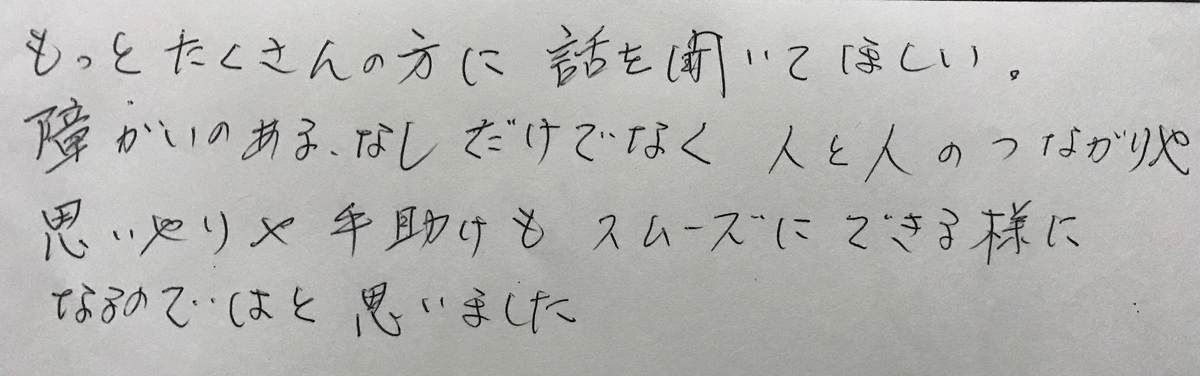 もっとたくさんの方に 話を聞いてほしい。
障がいのある、なしだけでなく 人と人のつながりや
思いやりや 手助けも スムーズにできる様に
なるのではと 思いました